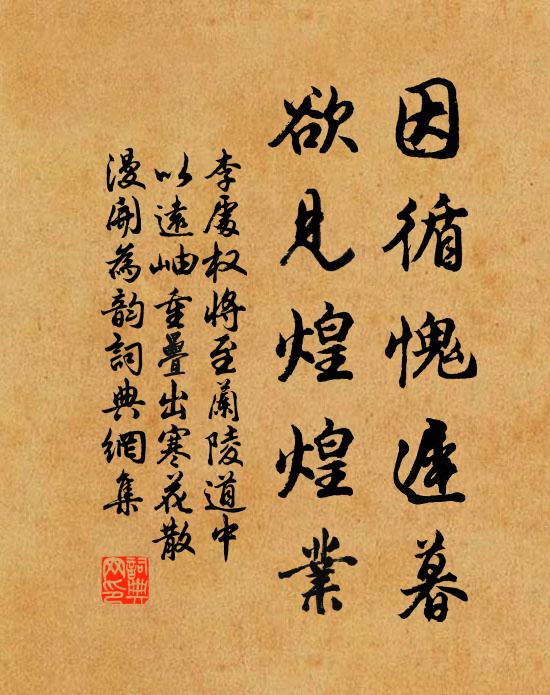 因循愧遲暮
欲見煌煌業
李處权將至蘭陵道中
以遠岫重疊出寒花散
漫開為韵詞典網集
詞典
网印